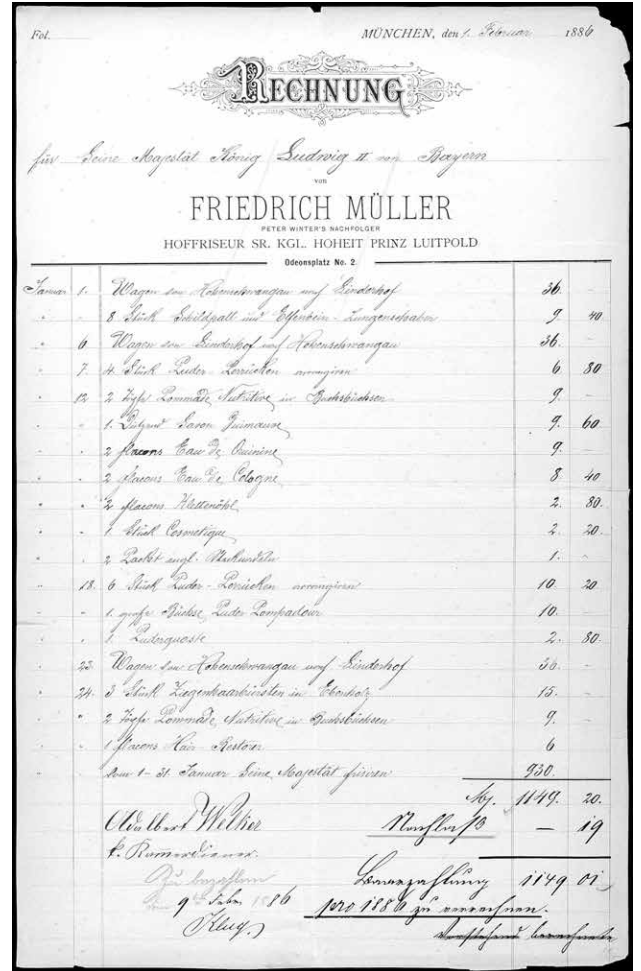 Fol. MÜNCHEN, den 1. Februar 1886
RECHNUNG
für Seine Majestät König Ludwig II von Bayern
von
FRIEDRICH MÜLLER
PETER WINTER'S NACHFOLGER
HOFFRISEUR SR. KGL. HOHEIT PRINZ LUITPOLD
Odeonsplatz No. 2.
Januar 1. Wagen von Hohenschwangau nach Linderhof 36. -
" " 8 Stück Schildpatt und Elfenbein- 9. 40
" 6 Wagen von Linderhof nach Hohenschwangau 36. -
" 7. 4 Stück Puder-Perrücken arrangiren 6 80
" 12 2 Töpfe Pommade Nutritive in Buchsbüchsen 9. -
" " 1. Dutzend Savon Guimauve 9. 60
" " 2 flacons Eau de Quinine 9. -
" " 2 flacons Eau de Cologne 8. 40
" " 2 flacons Klettenöhl 2. 80.
" " 1. Stück Cosmetique 2. 20.
" " 2 Packet engl. 1. -
" 18. 6 Stück Puder-Perrücken arrangiren 10. 20
" " 1. große Büchse Puder Pompadour 10. -
" " 1. Puderquaste 2. 80.
" 23. Wagen von Hohenschwangau nach Linderhof 36. -
" 24. 3 Stück Ziegenhaarbürsten in Ebenholz 15. -
" " 2 Töpfe Pommade Nutritive in Buchsbüchsen 9. -
" " 1 flacons Hair-Restorer 6
" " Vom 1-31. Januar Seine Majestät frisiren 930.
1149. 20.
Adalbert Welker Nachlaß — 19
k. Kammerdiener.
Zu bezahlen Baarzahlung 1149 01
9 Febr. 1886 pro 1886 zu verrechnen.
Klug. Vorstehend berechnete